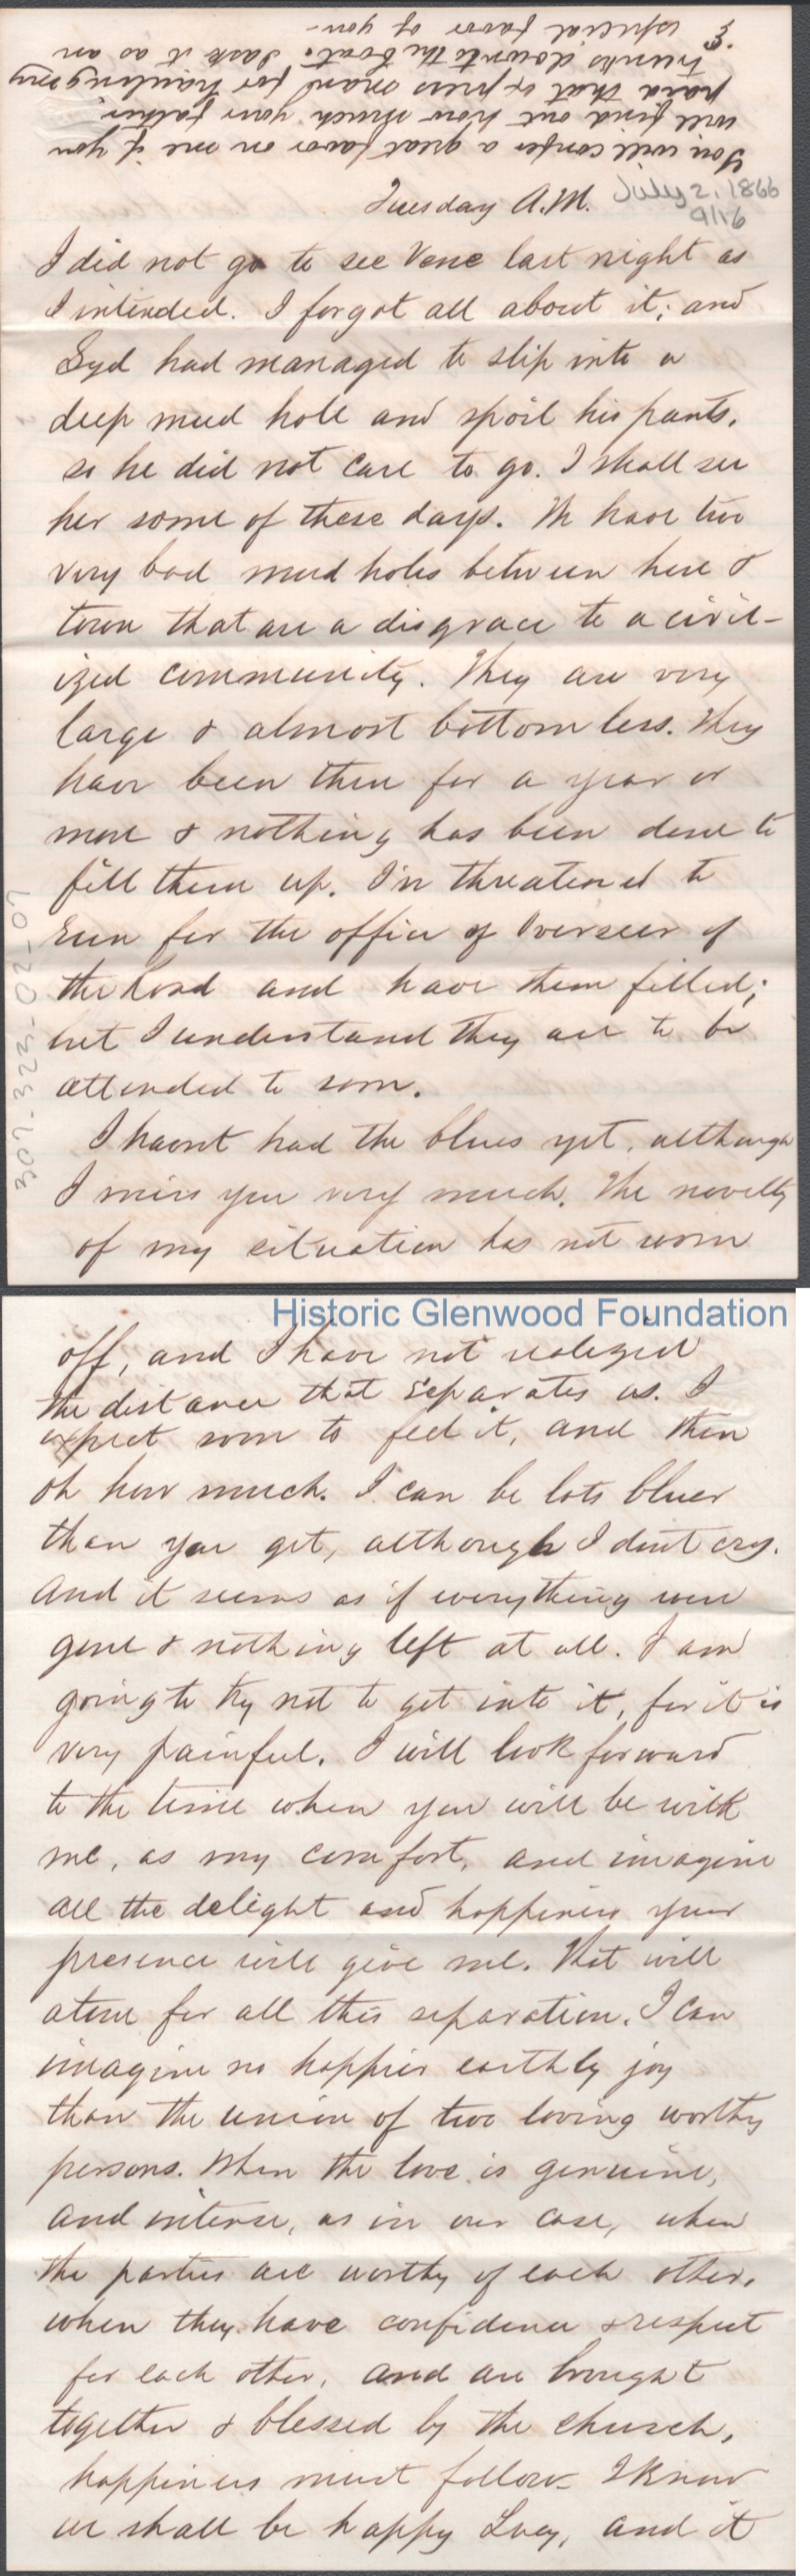 You will confer a great favor on me if you
will find out how much your father
paid that express man for hauling my
trunks down to the boat. I ask it as an
especial favor of you—
E.
Tuesday A.M.
July 2, 1866
9/16
I did not go to see Vene last night as
I intended. I forgot all about it; and
Syd had managed to slip into a
deep mud hole and spoil his pants,
so he did not care to go. I shall see
her some of these days. We have two
very bad mud holes between here &
town that are a disgrace to a civil-
ized community. They are very
large & almost bottomless. They
have been there for a year or
more & nothing has been done to
fill them up. I'v threatened to
run for the office of Overseer of
the Road and have them filled;
but I understand they are to be
attended to soon.
I havnt had the blues yet, although
I miss you very much. The novelty
of my situation has not worn
307-323-02-07
Historic Glenwood Foundation
off, and I have not realized
the distance that separates us. I
expect soon to feel it, and then
oh how much. I can be lots bluer
than you get, although I dont cry.
And it seems as if everything were
gone & nothing left at all. I am
going to try not to get into it, for it is
very painful. I will look forward
to the time when you will be with
me, as my comfort, and imagine
all the delight and happiness your
presence will give me. That will
atone for all this separation. I can
imagine no happier earthly joy
than the union of two loving worthy
persons. When the love is genuine,
and intense, as in our case, when
the parties are worthy of each other,
when they have confidence & respect
for each other, and are brought
together & blessed by the church,
happiness must follow— I know
we shall be happy Lucy, and it